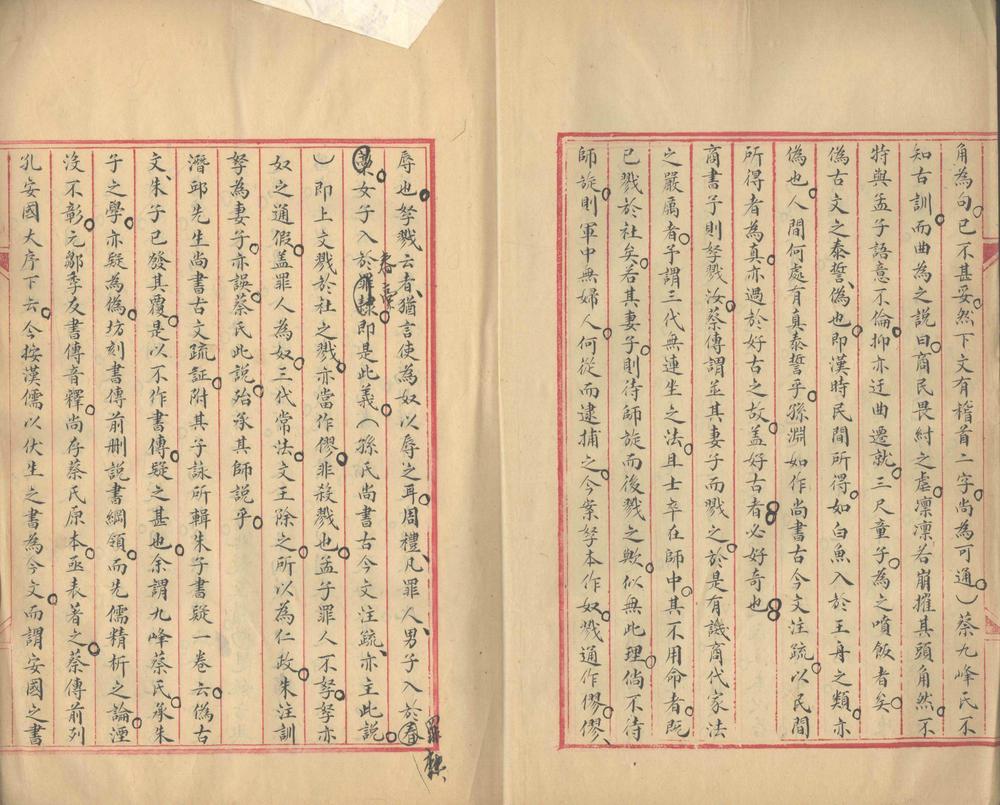 角為句已不甚妥然下文有稽首二字尚為可通）蔡九峰氏不
知古訓而曲為之説曰商民畏紂之虐凜凜若崩摧其頭角然不
特與孟子語意不倫抑亦迂曲遷就三尺童子為之噴飯者矣
偽古文之泰誓偽也即漢時民間所得如白魚入於王舟之類亦
偽也人間何處有真泰誓乎孫淵如作尚書古今文注疏以民間
所得者為真亦過於好古之故蓋好古者必好奇也
商書予則孥戮汝蔡傳謂並其妻子而戮之於是有譏商代家法
之嚴厲者予謂三代無連坐之法且士卒在師中其不用命者既
已戮於社矣若其妻子則待師旋而後戮之歟似無此理倘不待
師旋則軍中無婦人何從而逮捕之今案孥本作奴戮通作僇僇
辱也孥戮云者猶言使為奴以辱之耳周禮凡罪人男子入於舂
罪隸
藁女子入於罪隸即是此義（孫氏尚書古今文注疏亦主此説
舂
）即上文戮於社之戮亦當作僇非殺戮也孟子罪人不孥孥亦
奴之通假蓋罪人為奴三代常法文王除之所以為仁政朱注訓
孥為妻子亦誤蔡氏此説殆承其師説乎
潛邱先生尚書古文疏証附其子詠所輯朱子書疑一卷云偽古
文朱子已發其覆是以不作書傳疑之甚也余謂九峰蔡氏承朱
子之學亦疑為偽坊刻書傳前刪説書綱領而先儒精析之論湮
沒不彰元鄒季友書傳音釋尚存蔡氏原本亟表著之蔡傳前列
孔安國大序下云今按漢儒以伏生之書為今文而謂安國之書